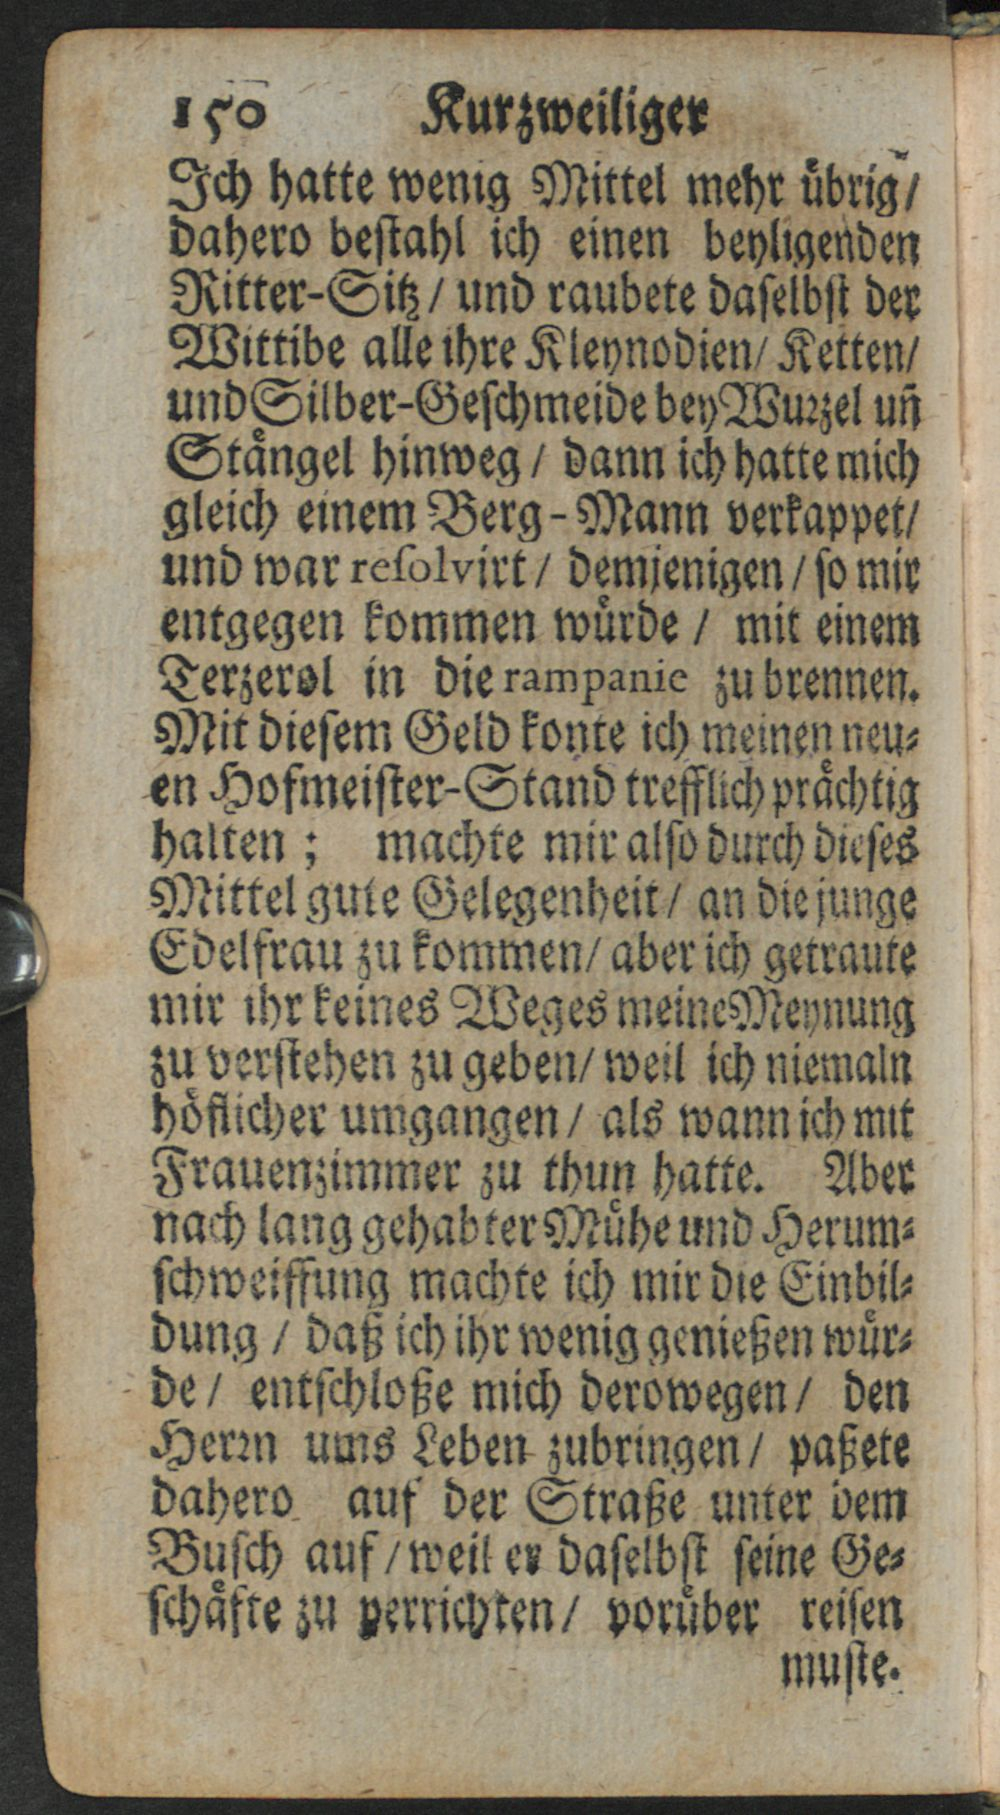 150 Kurzweiliger
Ich hatte wenig Mittel mehr uͤbrig/
dahero beſtahl ich einen beyligenden
Ritter-Sitz/ und raubete daſelbſt der
Wittibe alle ihre Kleynodien/ Ketten/
und Silber-Geſchmeide bey Wurzel uñ
Staͤngel hinweg / dann ich hatte mich
gleich einem Berg-Mann verkappet/
und war reſolvirt / demjenigen / ſo mir
entgegen kommen wuͤrde / mit einem
Terzerol in die rampanie zu brennen.
Mit dieſem Geld konte ich meinen neu⸗
en Hofmeiſter-Stand trefflich praͤchtig
halten ; machte mir alſo durch dieſes
Mittel gute Gelegenheit / an die junge
Edelfrau zu kommen/ aber ich getraute
mir ihr keines Weges meine Meynung
zu verſtehen zu geben/ weil ich niemaln
hoͤflicher umgangen / als wann ich mit
Frauenzimmer zu thun hatte. Aber
nach lang gehabter Muͤhe und Herum⸗
ſchweiffung machte ich mir die Einbil⸗
dung / daß ich ihr wenig genießen wuͤr⸗
de / entſchloße mich derowegen / den
Herrn ums Leben zubringen / paßete
dahero auf der Straße unter dem
Buſch auf / weil er daſelbſt ſeine Ge⸗
ſchaͤfte zu verrichten / voruͤber reiſen
muſte.